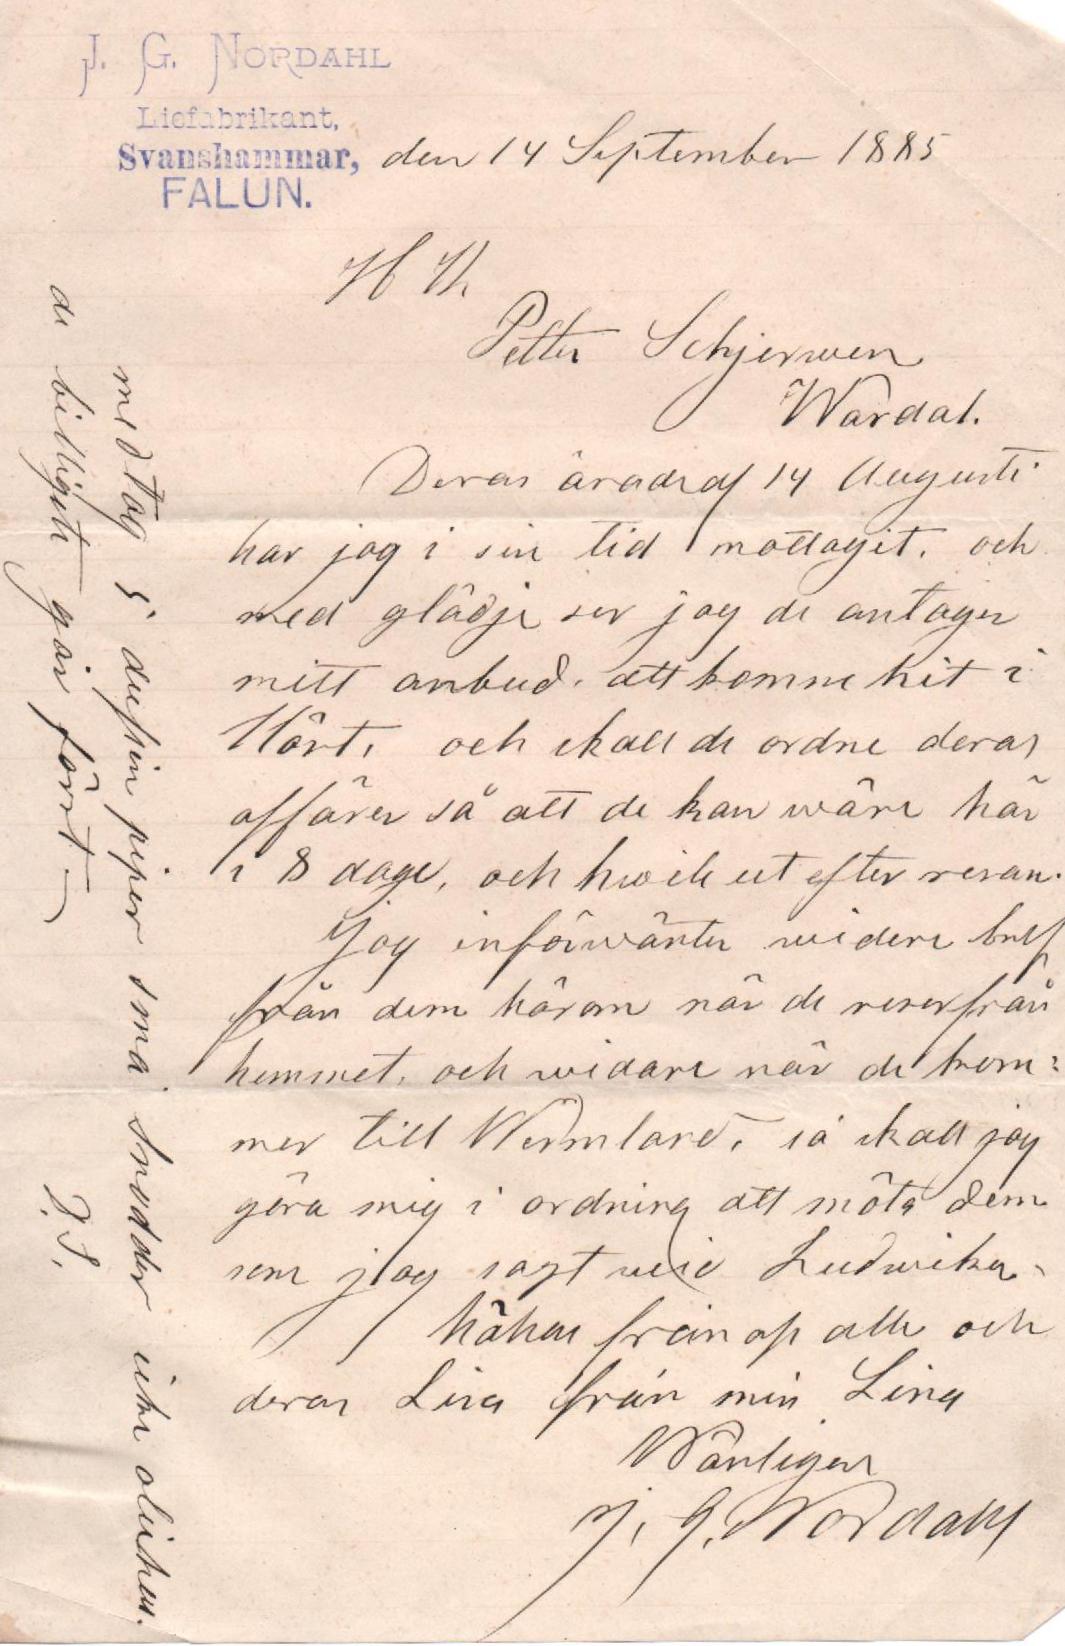 J. G. NORDAHL
Liefabrikant,
Svanshammar, den 14 September 1885
FALUN.
H Hr.
Petter Schjerwen
Wärdal.
Deras ärade af 14 Augusti
har jag i sin tid mottagit. och
med glädje ser jag de antager
mitt anbud. att komme hit i
Höst, och skall de ordne deras
affärer så att de kan wäre här
i 8 dage, och hwile ut efter resan.
Jag införwänter widere bref
från dem härom när de reser från
hemmet, och widare när de kom:
mer till Wermland, så skall jag
göra mig i ordning att möta dem
som jag sagt wid Ludwika.
hälsen från op alle och
deras Lina från min Lina
Wänligen
J. G. Nordahl
P.S.
medtag 5 dussin piper små snadder ike oliken.
de billigste går först